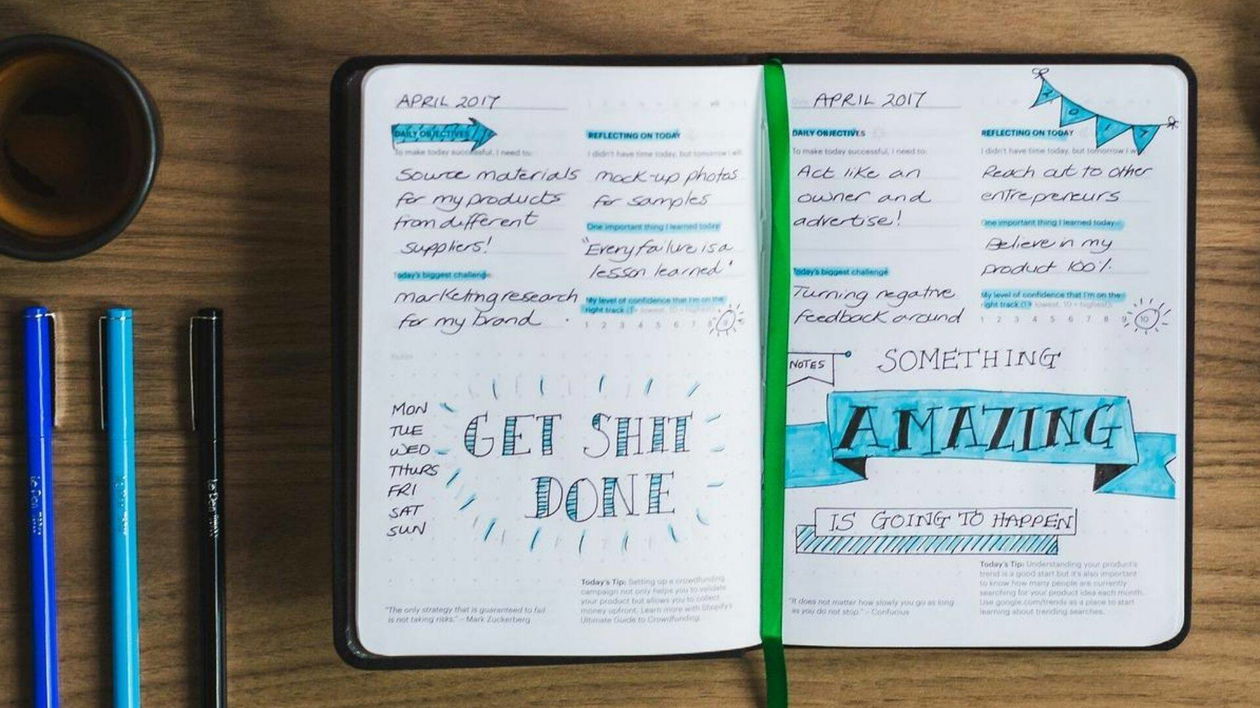 APRIL 2017
DAILY OBJECTIVES
To make today successful, I need to:
Source materials
for my products
from different
suppliers!
Today's biggest challenge
marketing research
for my brand
REFLECTING ON TODAY
I didn't have time today, but tomorrow I will:
mock-up photos
for samples
One important thing I learned today
"Every failure is a
lesson learned"
My level of confidence that I'm on the
right track (1 = lowest, 10 = highest)
1 2 3 4 5 6 7 8 9
Notes
MON
TUE
WED
THURS
FRI
SAT
SUN
GET SHIT
DONE
"The only strategy that is guaranteed to fail
is not taking risks." – Mark Zuckerberg
Today's Tip: Setting up a crowdfunding
campaign not only helps you to validate
your product but allows you to collect
money upfront. Learn more with Shopify's
Ultimate Guide to Crowdfunding.
APRIL 2017
DAILY OBJECTIVES
To make today successful, I need to:
Act like an
owner and
advertise!
Today's biggest challenge
Turning negative
feedback around
REFLECTING ON TODAY
I didn't have time today, but tomorrow I w
Reach out to other
entrepreneurs
One important thing I learned today
Believe in my
product 100%
My level of confidence that I'm on the
right track (1 = lowest, 10 = highest)
1 2 3 4 5 6 7 8 9 10
NOTES
SOMETHING
AMAZING
IS GOING TO HAPPEN
"It does not matter how slowly you go as long
as you do not stop." – Confucius
Today's Tip: Understanding your product's
trend is a good start but it's also important
to know how many people are currently
searching for your product idea each month.
Use google.com/trends as a place to start
learning about trending searches.